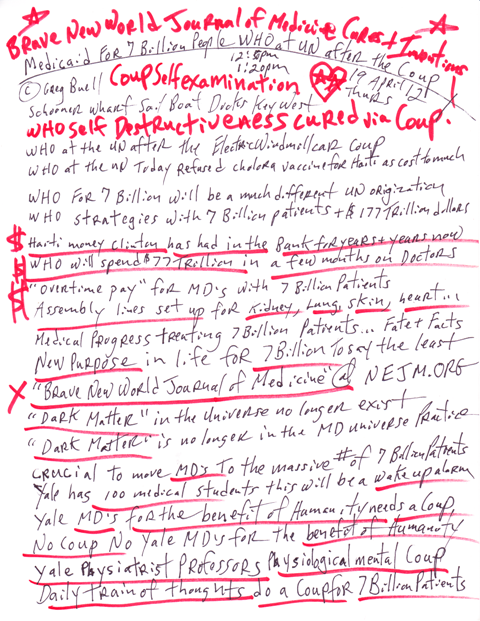 Brave New World Journal of Medicine Cures + Inventions
Medicaid For 7 Billion People WHO at UN after the Coup
12:58pm
1:20pm
© Greg Buell Coup Self examination 19 April 12
Schooner Wharf Sail Boat Docks Key West Thurs
WHO Self Destructiveness cured via Coup.
WHO at the UN after the Electric Windmill car Coup
WHO at the UN Today Refused cholora vaccine for Haiti as cost to much
WHO For 7 Billion will be a much different UN origization
WHO strategies with 7 Billion patients + $177 Trillion dollars
$ Haiti money Clinton has had in the Bank for years + years now
$ WHO will spend $77 Trillion in a few months on Doctors
$ "overtime pay" for MD's with 7 Billion Patients
Assembly lines set up for Kidney, Lung, Skin, heart...
Medical Progress treating 7 Billion Patients... Fate + Facts
New Purpose in life for 7 Billion To say the least
X "Brave New World Journal of Medicine" @ NEJM.ORG
"Dark Matter" in the Universe no longer exist
"Dark Matter" is no longer in the MD universe Practice
crucial to move MD's To the massive # of 7 Billion Patients
Yale has 100 medical students this will be a wake up alarm
Yale MD's for the benefit of Humanity needs a Coup,
No Coup No Yale MD's for the benefit of Humanity
Yale Physiatrist Professors Physiological mental Coup
Daily train of thoughts do a Coup for 7 Billion Patients